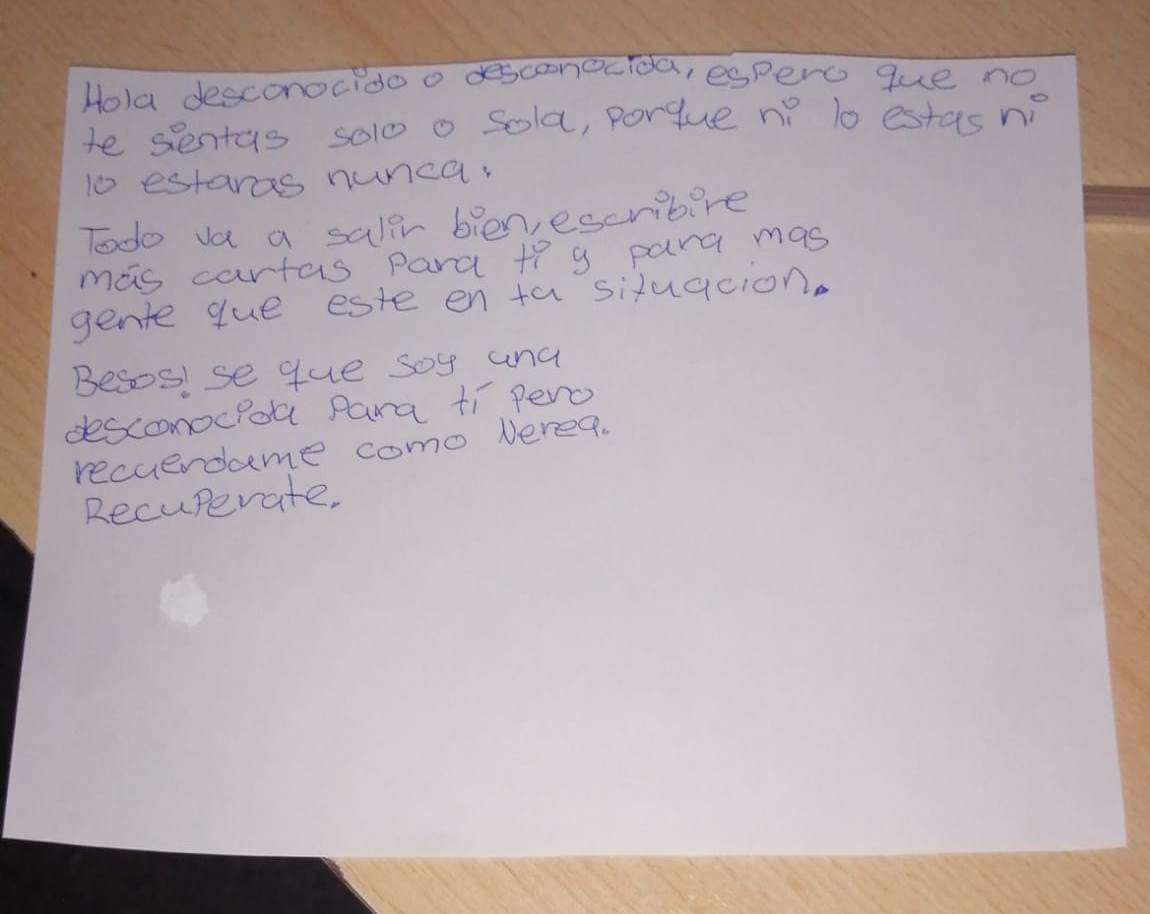 Hola desconocido o desconocida, espero que no
te sientas solo o sola, porque ni lo estas ni
lo estaras nunca.
Todo va a salir bien, escribire
más cartas para ti y para mas
gente que este en tu situacion.
Besos! se que soy una
desconocida para tí pero
recuerdame como Nerea.
Recuperate.